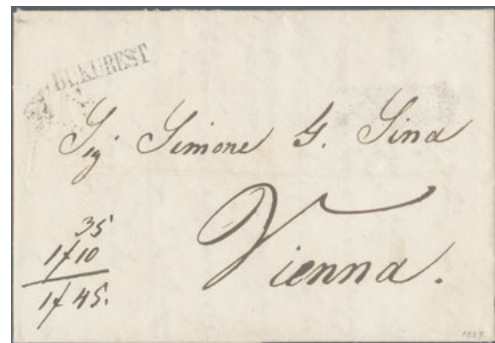 BUKUREST
Sigʳ Simone G. Sina
Vienna.
35
1f 10
1f 45.